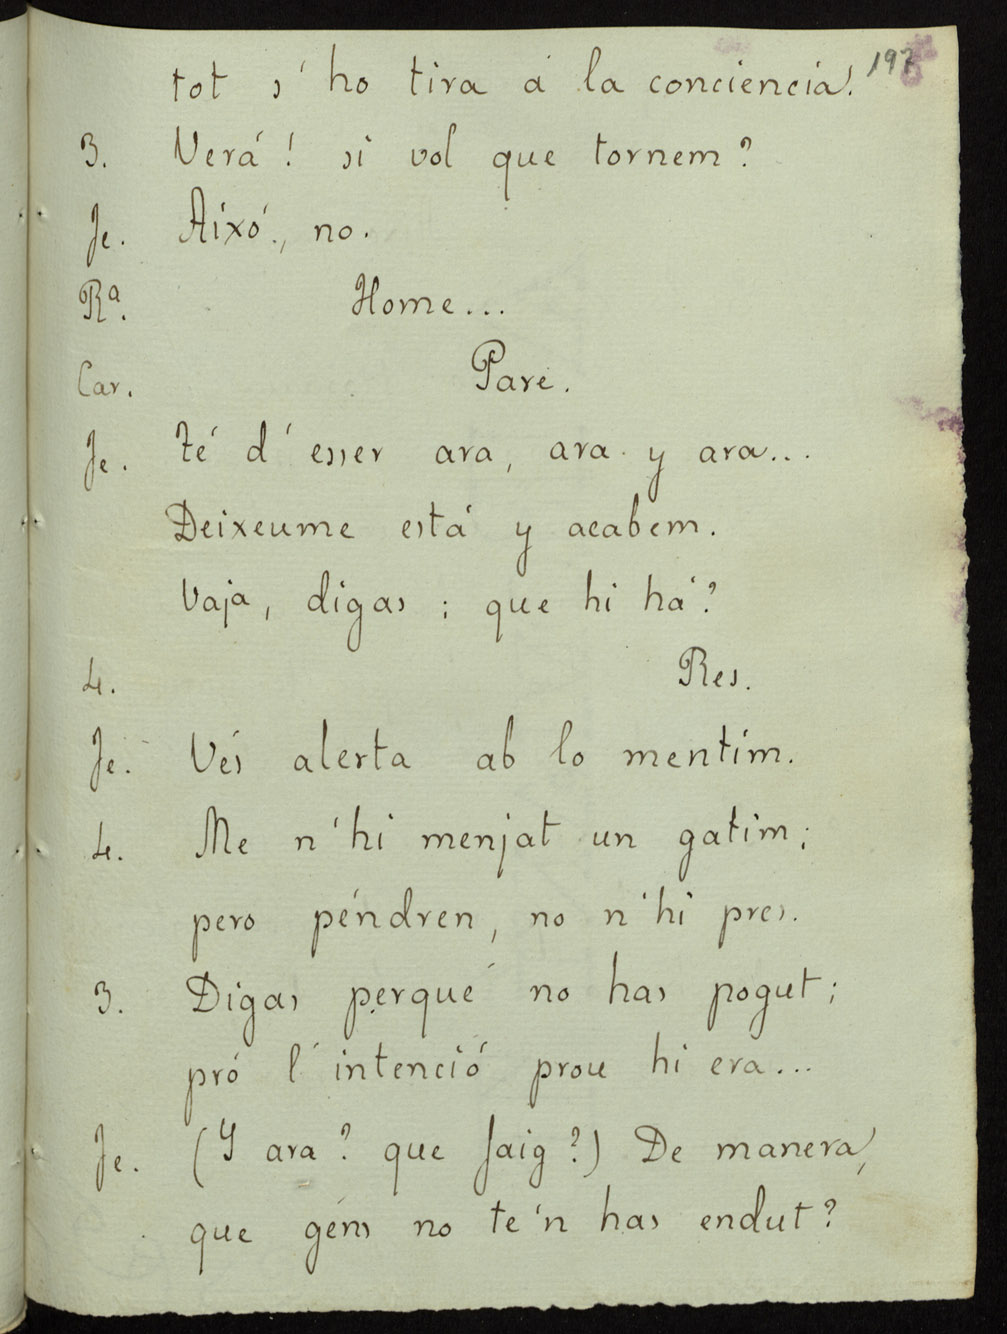 197
tot s' ho tira á la conciencia!
3. Verá! si vol que tornem?
Je. Aixó, no.
Rª. Home...
Car. Pare.
Je. Té d' esser ara, ara y ara...
Deixeume está y acabem.
Vaja, digas; que hi há?
4. Res.
Je. Vés alerta ab lo mentím.
4. Me n'hi menjat un gatím;
pero péndren, no n'hi pres.
3. Digas perqué no has pogut;
pró l' intenció prou hi era...
Je. (Y ara? que faig?) De manera,
que géns no te'n has endut?